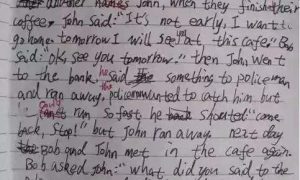 another names John, when they finished their
coffee, John said: "It's not early, I want to
go home tomorrow I will see you at this cafe." Bob
said: "ok, see you tomorrow." then John went
to the bank, he said something to policeman
and ran away, the policeman wanted to catch him but
can't run so fast he shouted "come
back, stop!" but John ran away next day
Bob and John met in the cafe again.
Bob asked John: "what did you said to the